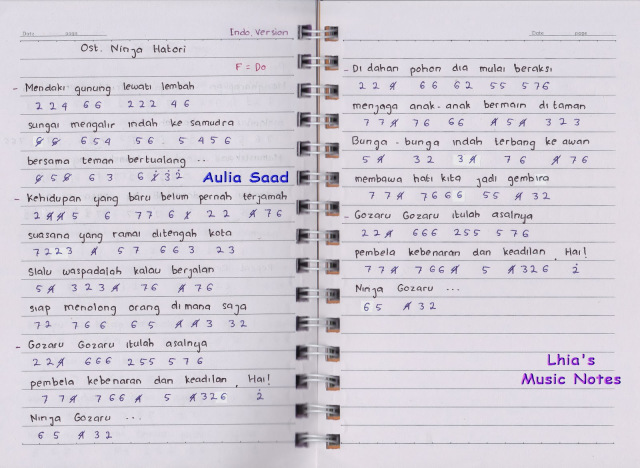 Date page Indo. Version
Ost. Ninja Hatori
F = Do
- Mendaki gunung lewati lembah
2 2 4 6 6 2 2 2 4 6
sungai mengalir indah ke samudra
6 5 4 5 6 . 5 4 5 6
bersama teman bertualang ..
6 3
Aulia Saad
- Kehidupan yang baru belum pernah terjamah
2 4̸ 4̸ 5 6 7 7 6 4̸ 2 2 4̸ 7 6
suasana yang ramai ditengah kota
7 2 2 3 4̸ 5 7 6 6 3 2 3
Slalu waspadalah kalau berjalan
5 4̸ 3 2 3 4̸ 7 6 4̸ 7 6
siap menolong orang dimana saja
7 2 7 6 6 6 5 4̸ 4̸ 3 3 2
- Gozaru Gozaru itulah asalnya
2 2 4̸ 6 6 6 2 5 5 5 7 6
pembela kebenaran dan keadilan, Hai!
7 7 4̸ 7 6 6 4̸ 5 4̸ 3 2 6 2̇
Ninja Gozaru ...
6 5 4̸ 3 2
Date page
- Di dahan pohon dia mulai beraksi
2 2 4̸ 6 6 6 2 5 5 5 7 6
menjaga anak-anak bermain di taman
7 7 4̸ 7 6 6 6 4̸ 5 4̸ 3 2 3
Bunga - bunga indah terbang ke awan
5 4̸ 3 2 3 4̸ 7 6 4̸ 7 6
membawa hati kita jadi gembira
7 7 4̸ 7 6 6 6 5 5 4̸ 3 2
- Gozaru Gozaru itulah asalnya
2 2 4̸ 6 6 6 2 5 5 5 7 6
pembela kebenaran dan keadilan, Hai!
7 7 4̸ 7 6 6 4̸ 5 4̸ 3 2 6 2̇
Ninja Gozaru ...
6 5 4̸ 3 2
Lhia's
Music Notes